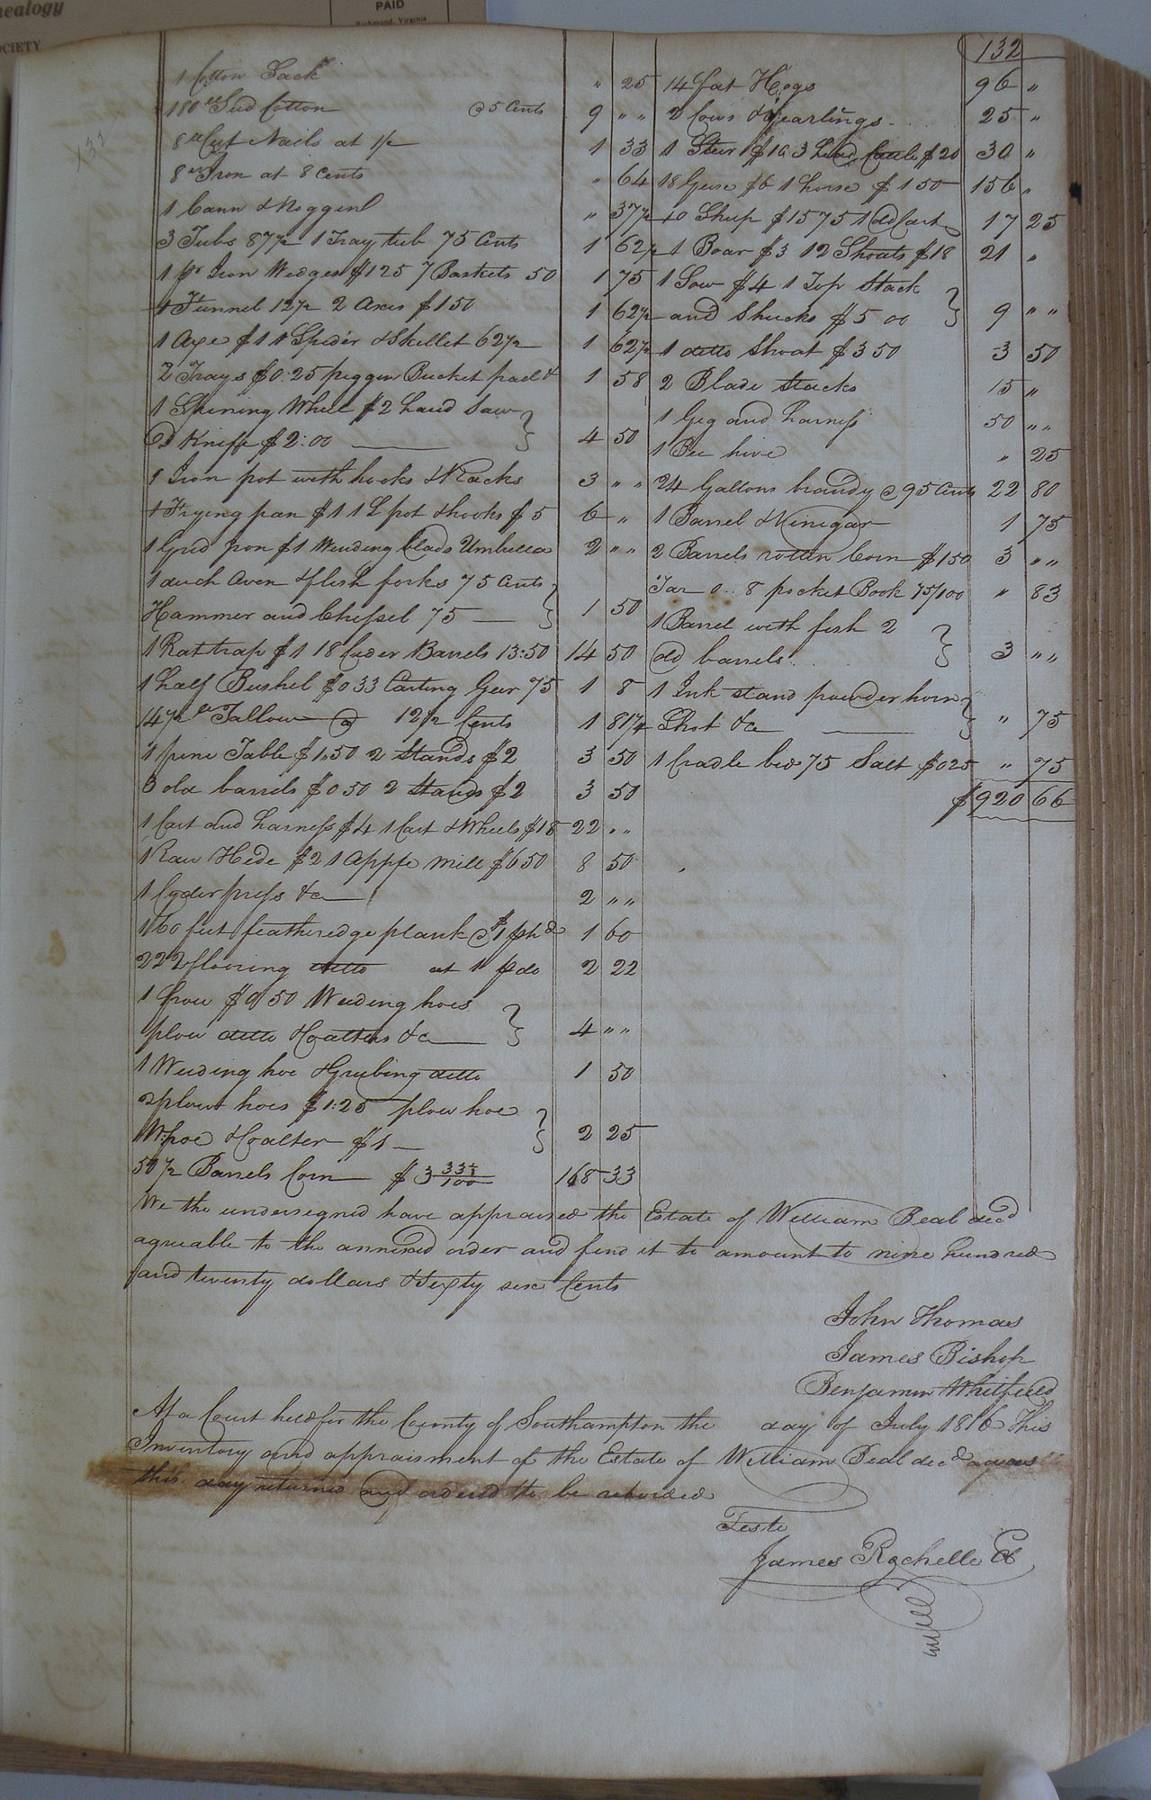 nealogy
OCIETY
PAID
Richmond, Virginia
132
1 Cotton Sack " 25
180 lb Seed Cotton @ 5 Cents 9 " "
8 lb Cut Nails at 1/ 1 33
8 lb Iron at 8 Cents " 64
1 Cann & Noggin " 37 1/2
3 Tubs 87 1/2 1 Tray tub 75 Cents 1 62 1/2
1 pr Iron Wedges $1 25 7 Baskets 50 1 75
1 Funnel 12 1/2 2 Axes $1 50 1 62 1/2
1 Axe $1 1 Spider & Skillet 62 1/2 1 62 1/2
2 Trays $0.25 piggin Bucket pail & 1 58
1 Spining Wheel $2 hand Saw
Knife $2:00 4 50
1 Iron pot with hooks & Racks 3 " "
1 Frying pan $1 1 L pot & hooks $5 6 "
1 Grid Iron $1 Winding blads Umbrella 2 " "
1 duch Oven & flesh forks 75 Cents
Hammer and Chissel 75 1 50
1 Rat trap $1 18 Cider Barrels 13:50 14 50
1 half Bushel $0 33 Carting Gear 75 1 8
14 1/2 lb Tallow @ 12 1/2 Cents 1 81 1/4
1 pine Table $1.50 2 Stands $2 3 50
3 old barrels $0 50 2 Stands $2 3 50
1 Cart and harness $4 1 Cart & Wheels $18 22 " "
1 Raw Hide $2 1 Apple Mill $6 50 8 50
1 Cyder press &c 2 " "
160 feet featheredge plank @ $1 phd 1 60
222 flooring ditto at 1 p do 2 22
1 frow $0 50 Weeding hoes
plow ditto Coalters &c 4 " "
1 Weeding hoe & Grubing ditto 1 50
2 plow hoes $1:25 plow hoe
W:hoe & Coalter $1 2 25
50 1/2 Barrels Corn $3 33 1/3/100 168 33
14 fat Hogs 96 "
2 Cows & yearlings 25 "
1 Steer $10 3 head Cattle $20 30 "
18 Geese $6 1 horse $150 156 "
10 Sheep $15 75 1 old Cart 17 25
1 Boar $3 12 Shoats $18 21 "
1 Sow $4 1 Top Stack
and Shucks $5 00 9 " "
1 ditto Shoat $3 50 3 50
2 Blade Stacks 15 "
1 Gig and harness 50 " "
1 Bee hive " 25
24 Gallons brandy @ 95 Cents 22 80
1 Barrel & Vinigar 1 75
2 Barrels rotten Corn $1 50 3 " "
Tar 0..8 pocket Book 75/100 " 83
1 Barrel with fish 2
old barrels 3 " "
1 Ink stand powder horn
Shot &c " 75
1 Cradle bed 75 Salt $0 25 " 75
$920 66
We the undersigned have appraised the Estate of William Beal decd
agreable to the annexed order and find it to amount to nine hundred
and twenty dollars & Sixty six Cents
John Thomas
James Bishop
Benjamin Whitfield
At a Court held for the County of Southampton the day of July 1816 This
Inventory and appraisment of the Estate of William Beal decd was
this day returned and ordered to be recorded
Teste
James Rochelle Cl